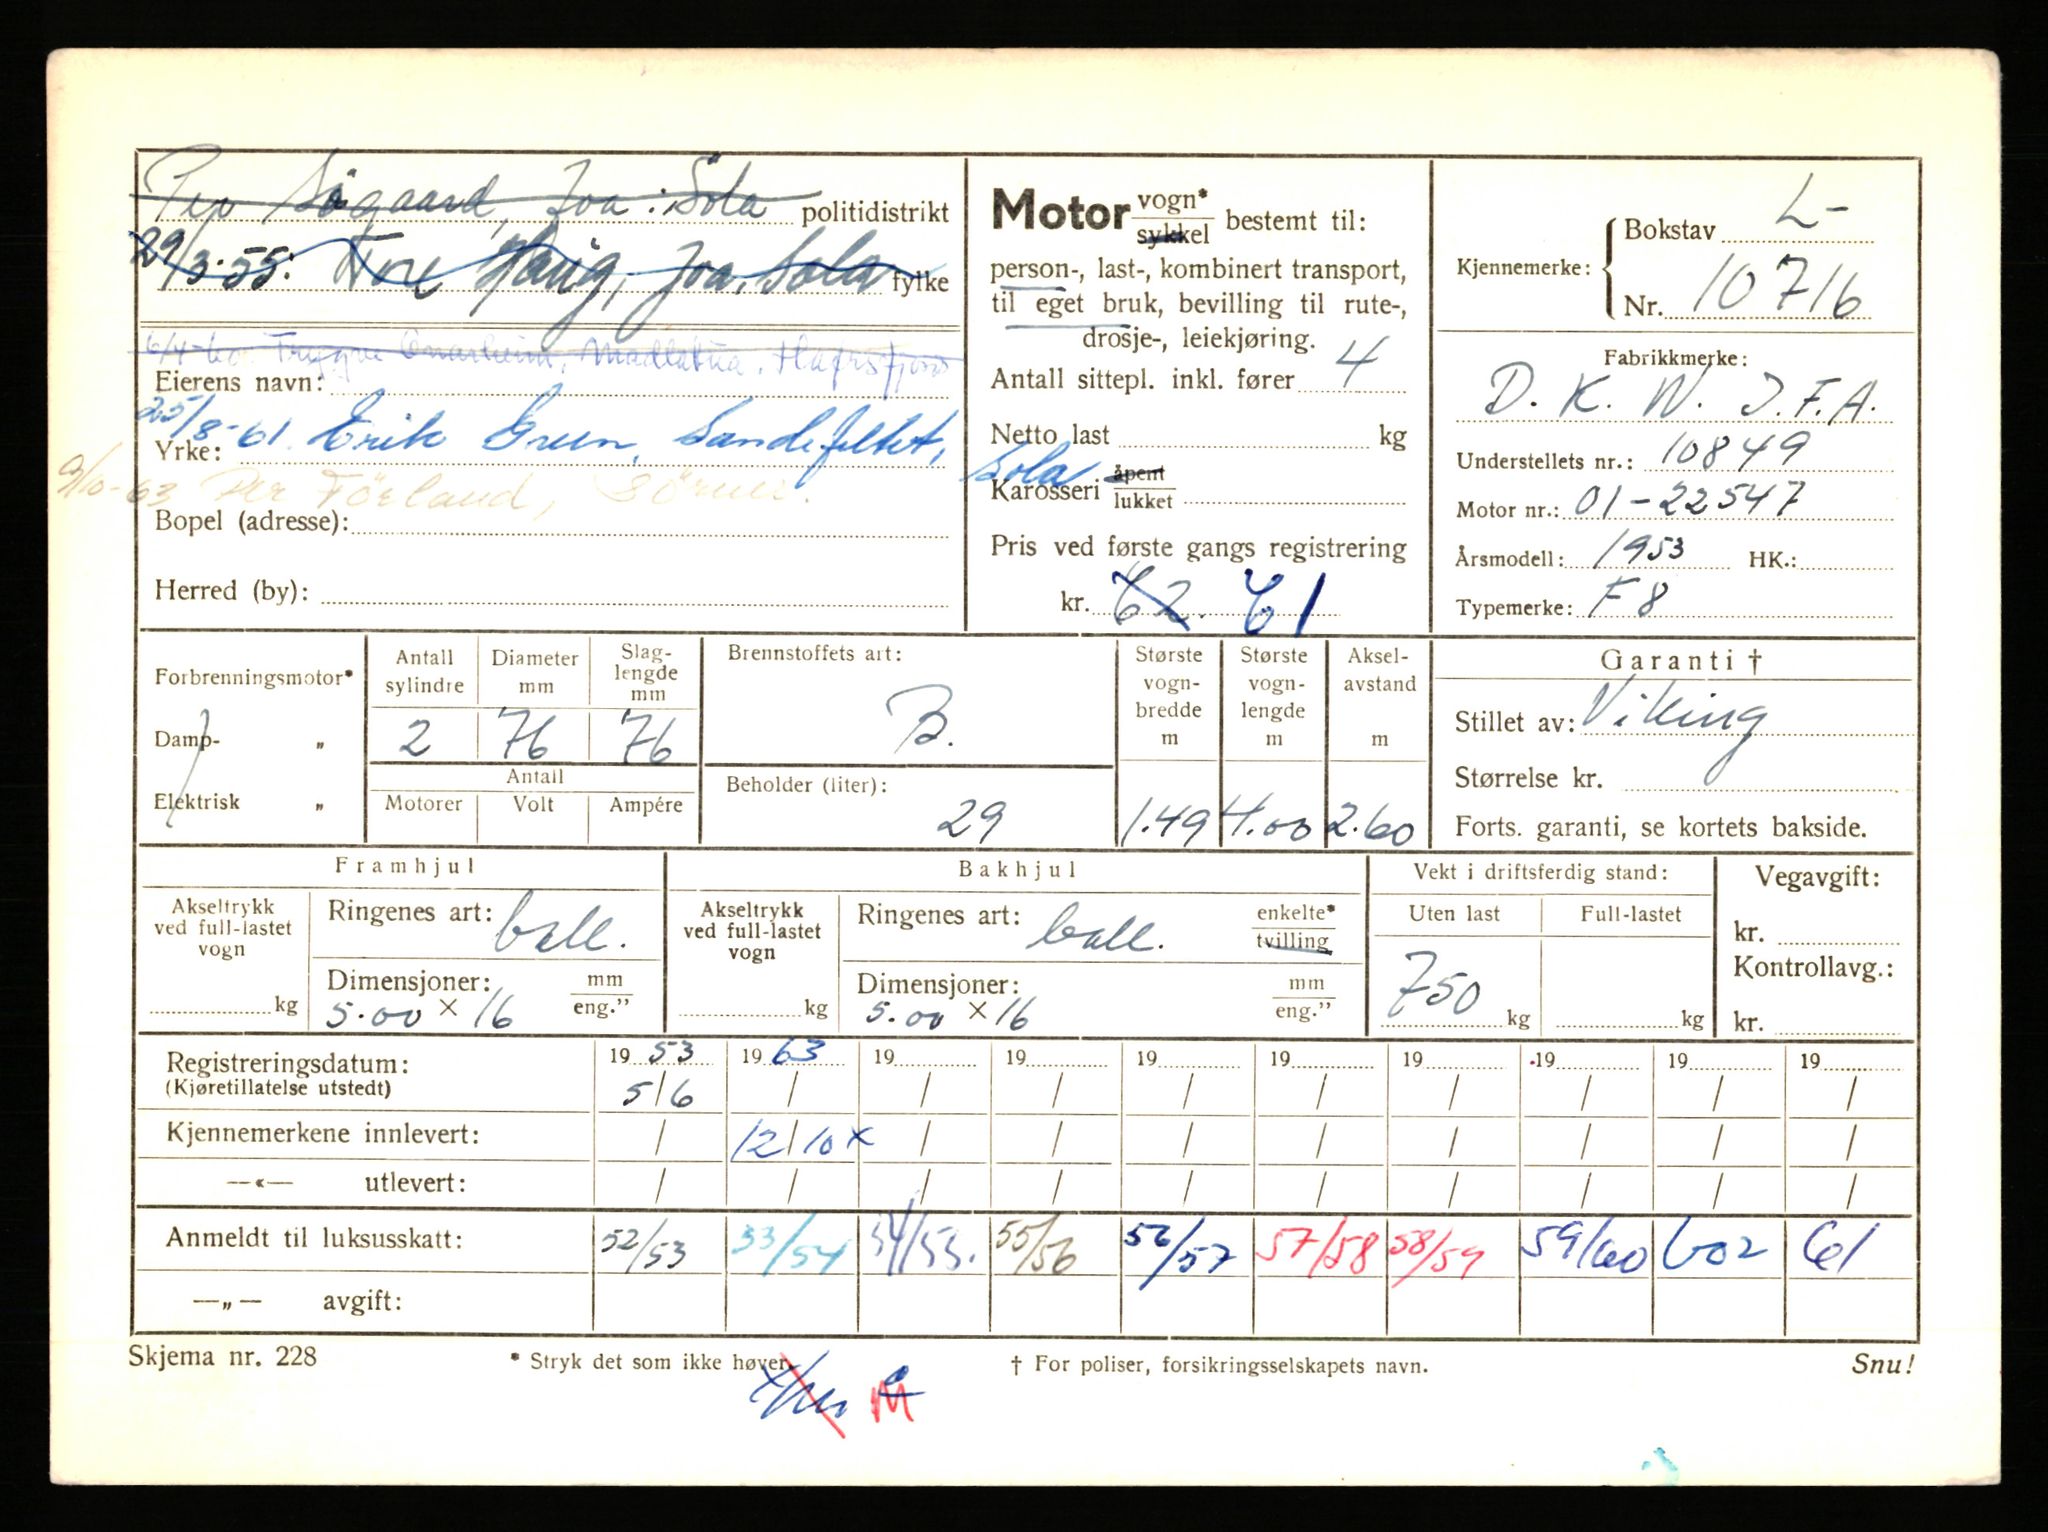 Per Søgaard, Joa. Sola politidistrikt
29/3-55: Tore Haug, Joa, Sola fylke
6/4-60. Trygve Onarheim, Madlatua, Hafrsfjord
Eierens navn:
25/8-61 Erik Green, Sandefeltet, Sola
Yrke:
9/10-63 Per Förland,
Bopel (adresse):
Herred (by):
Motor vogn* sykkel bestemt til:
person-, last-, kombinert transport,
til eget bruk, bevilling til rute-,
drosje-, leiekjøring.
Antall sittepl. inkl. fører 4
Netto last kg
Karosseri åpent lukket
Pris ved første gangs registrering
kr. 62. 61
Kjennemerke: Bokstav L-
Nr. 10716
Fabrikkmerke:
D. K. W. I.F.A.
Understellets nr.: 10849
Motor nr.: 01-22547
Årsmodell: 1953 HK.:
Typemerke: F 8
Forbrenningsmotor*
Damp- „
Elektrisk „
Antall sylindre 2
Diameter mm 76
Slag-lengde mm 76
Antall
Motorer Volt Ampére
Brennstoffets art:
B.
Beholder (liter):
29
Største vogn-bredde m 1.49
Største vogn-lengde m 4.00
Aksel-avstand m 2.60
Garanti †
Stillet av: Viking
Størrelse kr.
Forts. garanti, se kortets bakside.
Framhjul
Akseltrykk ved full-lastet vogn
kg
Ringenes art: ball.
Dimensjoner: mm eng."
5.00 × 16
Bakhjul
Akseltrykk ved full-lastet vogn
kg
Ringenes art: ball. enkelte* tvilling
Dimensjoner: mm eng."
5.00 × 16
Vekt i driftsferdig stand:
Uten last Full-lastet
750 kg kg
Vegavgift:
kr.
Kontrollavg.:
kr.
Registreringsdatum: 19 53 19 63 19 19 19 19 19 19 19 19
(Kjøretillatelse utstedt) 5/6 / / / / / / / / /
Kjennemerkene innlevert: / 12/10 x / / / / / / / /
—«— utlevert: / / / / / / / / / /
Anmeldt til luksusskatt: 52/53 53/54 54/55. 55/56 56/57 57/58 58/59 59/60 602 61
—„— avgift:
Skjema nr. 228 * Stryk det som ikke høver. † For poliser, forsikringsselskapets navn. Snu!
M